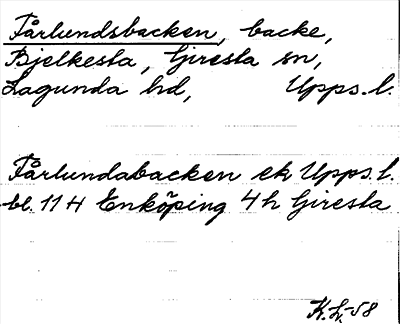 Tårlundsbacken, backe,
Bjelkesta, Giresta sn,
Lagunda hd, Upps. l.
Tårlundabacken ek Upps. l.
bl. 11 H Enköping 4 h Giresta
K. L-58